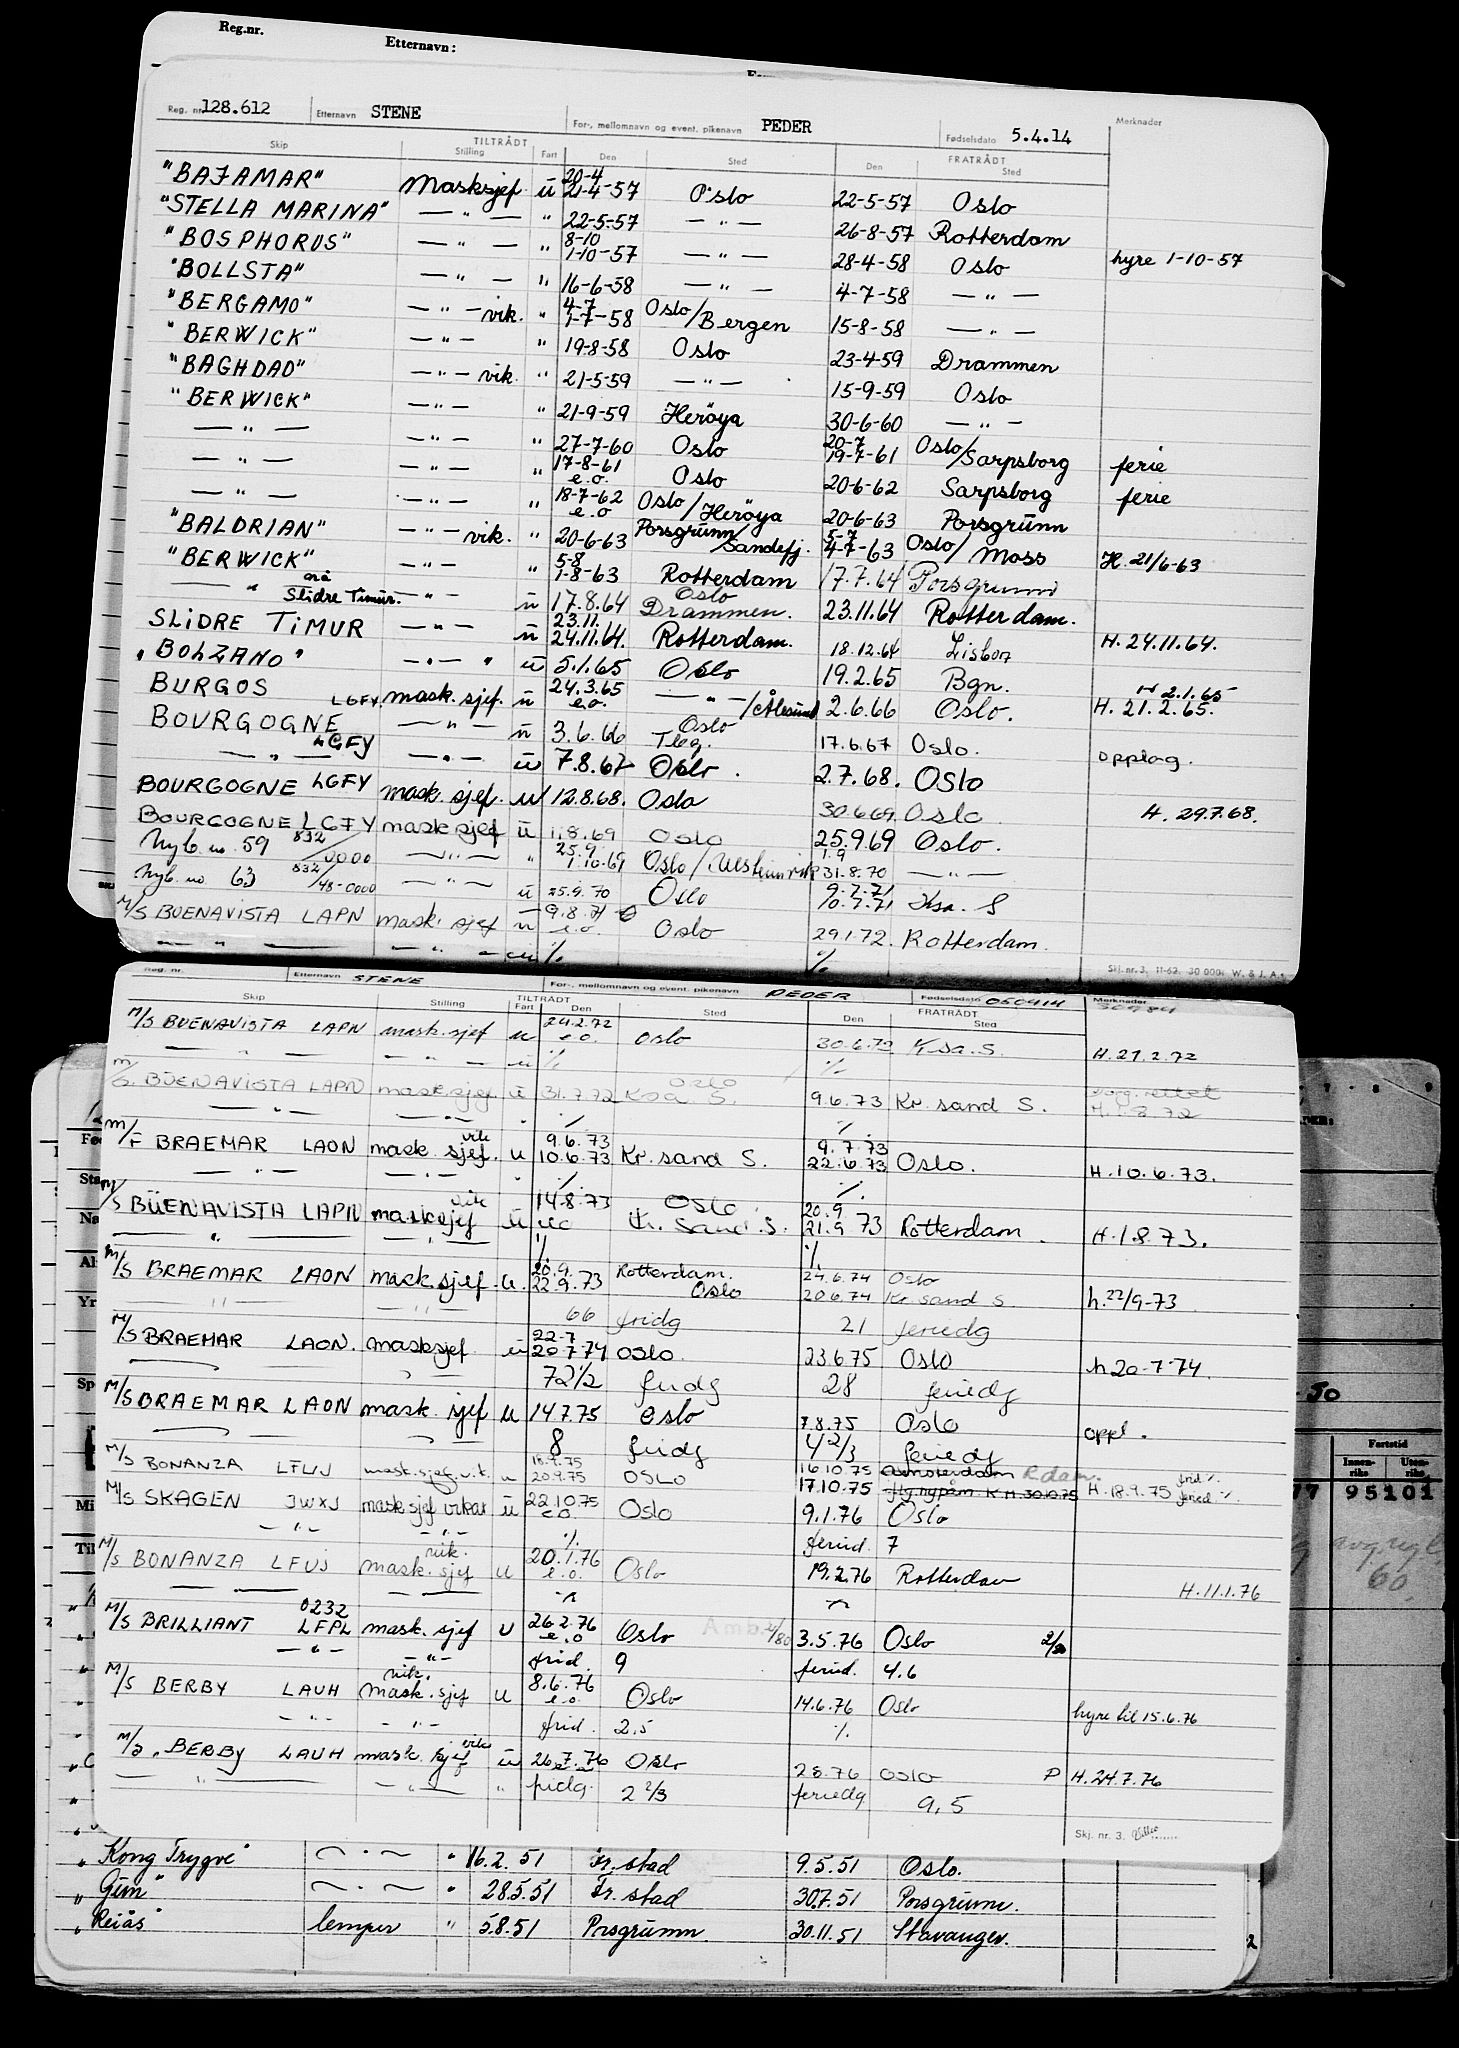 Reg.nr. Etternavn:
Reg. nr. 128.612 Etternavn STENE For-, mellomnavn og event. pikenavn PEDER Fødselsdato 5.4.14 Merknader
TILTRÅDT FRATRÅDT
Skip Stilling Fart Den Sted Den Sted
20-4
"BAJAMAR" Masksjef. ü 21-4-57 Oslo 22-5-57 Oslo
"STELLA MARINA" — " — " 22-5-57 — " — 26-8-57 Rotterdam
8-10
"BOSPHORUS" — " — " 1-10-57 — " — 28-4-58 Oslo hyre 1-10-57
"BOLLSTA" — " — " 16-6-58 — " — 4-7-58 — " —
4-7
"BERGAMO" — " — vik. " 1-7-58 Oslo/Bergen 15-8-58 — " —
"BERWICK" — " — " 19-8-58 Oslo 23-4-59 Drammen
"BAGHDAD" — " — vik. " 21-5-59 — " — 15-9-59 Oslo
"BERWICK" — " — " 21-9-59 Herøya 30-6-60 — " —
20-7
— " — — " — " 27-7-60 Oslo 19-7-61 Oslo/Sarpsborg ferie
— " — — " — " 17-8-61 e.o. Oslo 20-6-62 Sarpsborg ferie
— " — — " — " 18-7-62 e.o Oslo/Herøya 20-6-63 Porsgrünn
5-7
"BALDRIAN" — " — vik. " 20-6-63 Porsgrünn/Sandefj. 4-7-63 Oslo/Moss H. 21/6-63
5-8
"BERWICK" — " — " 1-8-63 Rotterdam 17.7.64 Porsgrunn
— " nå Slidre Timur. — " — ü 17.8.64 Oslo Drammen. 23.11.64 Rotterdam.
23.11.
SLIDRE TIMUR — " — ü 24.11.64. Rotterdam. 18.12.64 Lisbon H. 24.11.64.
"BOLZANO" — " — " ü 5.1.65 Oslo 19.2.65 Bgn. H 2.1.65
BURGOS LGFY mask. sjef. ü 24.3.65 e.o. — " — /Ålesund 2.6.66 Oslo. H. 21.2.65.
BOURGOGNE LGFY — " — ü 3.6.66 Oslo Tbg. 17.6.67 Oslo. opplag.
— " — — " — ü 7.8.67 Oslo. 2.7.68. Oslo
BOURGOGNE LGFY mask. sjef. u 12.8.68. Oslo 30.6.69. Oslo H. 29.7.68.
BOURGOGNE LGFY mask sjef ü 1.8.69 Oslo 25.9.69 Oslo.
Nyb. no. 59 832/0000 — " — " 25.9. 1.10.69 Oslo/Ulsteinvik 1.9 31.8.70 — " —
Nyb. no 63 832/48-0000 — " — ü 25.9.70 Oslo 9.7.71 10.7.71 Ksa. S
M/S BUENAVISTA LAPN mask. sjef ü 9.8.71 e.o. Oslo 29.1.72. Rotterdam.
— " — " — " — u ./. ./.
Skj. nr. 3. 11-62. 30 000. W. & J. A.s
Reg. nr. Etternavn STENE For-, mellomnavn og event. pikenavn PEDER Fødselsdato 050414 Merknader
TILTRÅDT FRATRÅDT
Skip Stilling Fart Den Sted Den Sted
M/S BUENAVISTA LAPN mask. sjef u 24.2.72 e.o. Oslo 30.6.72 Ksa. S. H. 21.2.72
— " — — " — u ./. ./.
M/S. BUENAVISTA LAPN mask.sjef ü 31.7.72 Oslo Ksa. S. 9.6.73 Kr. sand S. H. 1.8.72
— " — — " — ./. ./.
M/F BRAEMAR LAON mask. sjef. vik u 9.6.73 10.6.73 Kr. sand S. 9.7.73 22.6.73 Oslo. H. 10.6.73.
— " — — " — ./. ./.
M/S BÜENAVISTA LAPN mask sjef vik ü 14.8.73 eo Oslo Kr. Sand S. 20.9 21.9 73 Rotterdam. H. 1.8.73.
— " — — " — ./. ./.
M/S BRAEMAR LAON mask.sjef. u. 20.9. 22.9.73 Rotterdam. Oslo 24.6.74 Oslo 20.6.74 Kr. sand S h. 22/9-73
— " — — " — 66 fridg 21 feriedg
M/S BRAEMAR LAON. masksjef. ü 22-7 20-7.74 Oslo. 23.6.75 Oslo h 20-7-74.
72 1/2 fridg 28 feriedg
M/S BRAEMAR LAON mask. sjef u 14.7.75 Oslo 7.8.75 Oslo oppl.
8 fridg 4 2/3 feriedg
M/S BONANZA LFUJ mask.sjef.vik. u 18.9.75 20.9.75 OSLO 16.10.75 Amsterdam Rdam. 17.10.75 H. 18.9.75 frid ./. feried ./.
M/S SKAGEN JWXJ mask sjef vikar ü 22.10.75 e.o. Oslo 9.1.76 Oslo
— " — — " — ./. ferid. 7
M/S BONANZA LFUJ mask. sjef vik. u 20.1.76 e.o. Oslo 19.2.76 Rotterdam H. 11.1.76
M/S BRILLIANT 0232 LFPL mask. sjef u 26.2.76 e.o Oslo Amb. 2/80 3.5.76 Oslo 2/80
— " — — " — frid. 9 feried. 4.6
M/S BERBY LAUH mask. sjef vik. u 8.6.76 e.o. Oslo 14.6.76 Oslo hyre til 15.6.76
— " — — " — frid. 2.5 ./.
M/S. BERBY LAUH mask. sjef vikar ü 26.7.76 Oslo 2.8.76 Oslo P H. 24.7.76
— " — — " — " fridg. 2 2/3 feriedg 9,5
Skj. nr. 3.
50
Fartstid
Innen-riks Uten-riks
95101
avg.
60
"Kong Trygve" — " — " 16.2.51 Fr.stad 9.5.51 Oslo.
"Gim" — " — " 28.5.51 Fr. stad 30.7.51 Porsgrunn.
"Reiås" lemper " 5.8.51 Porsgrunn 30.11.51 Stavanger.